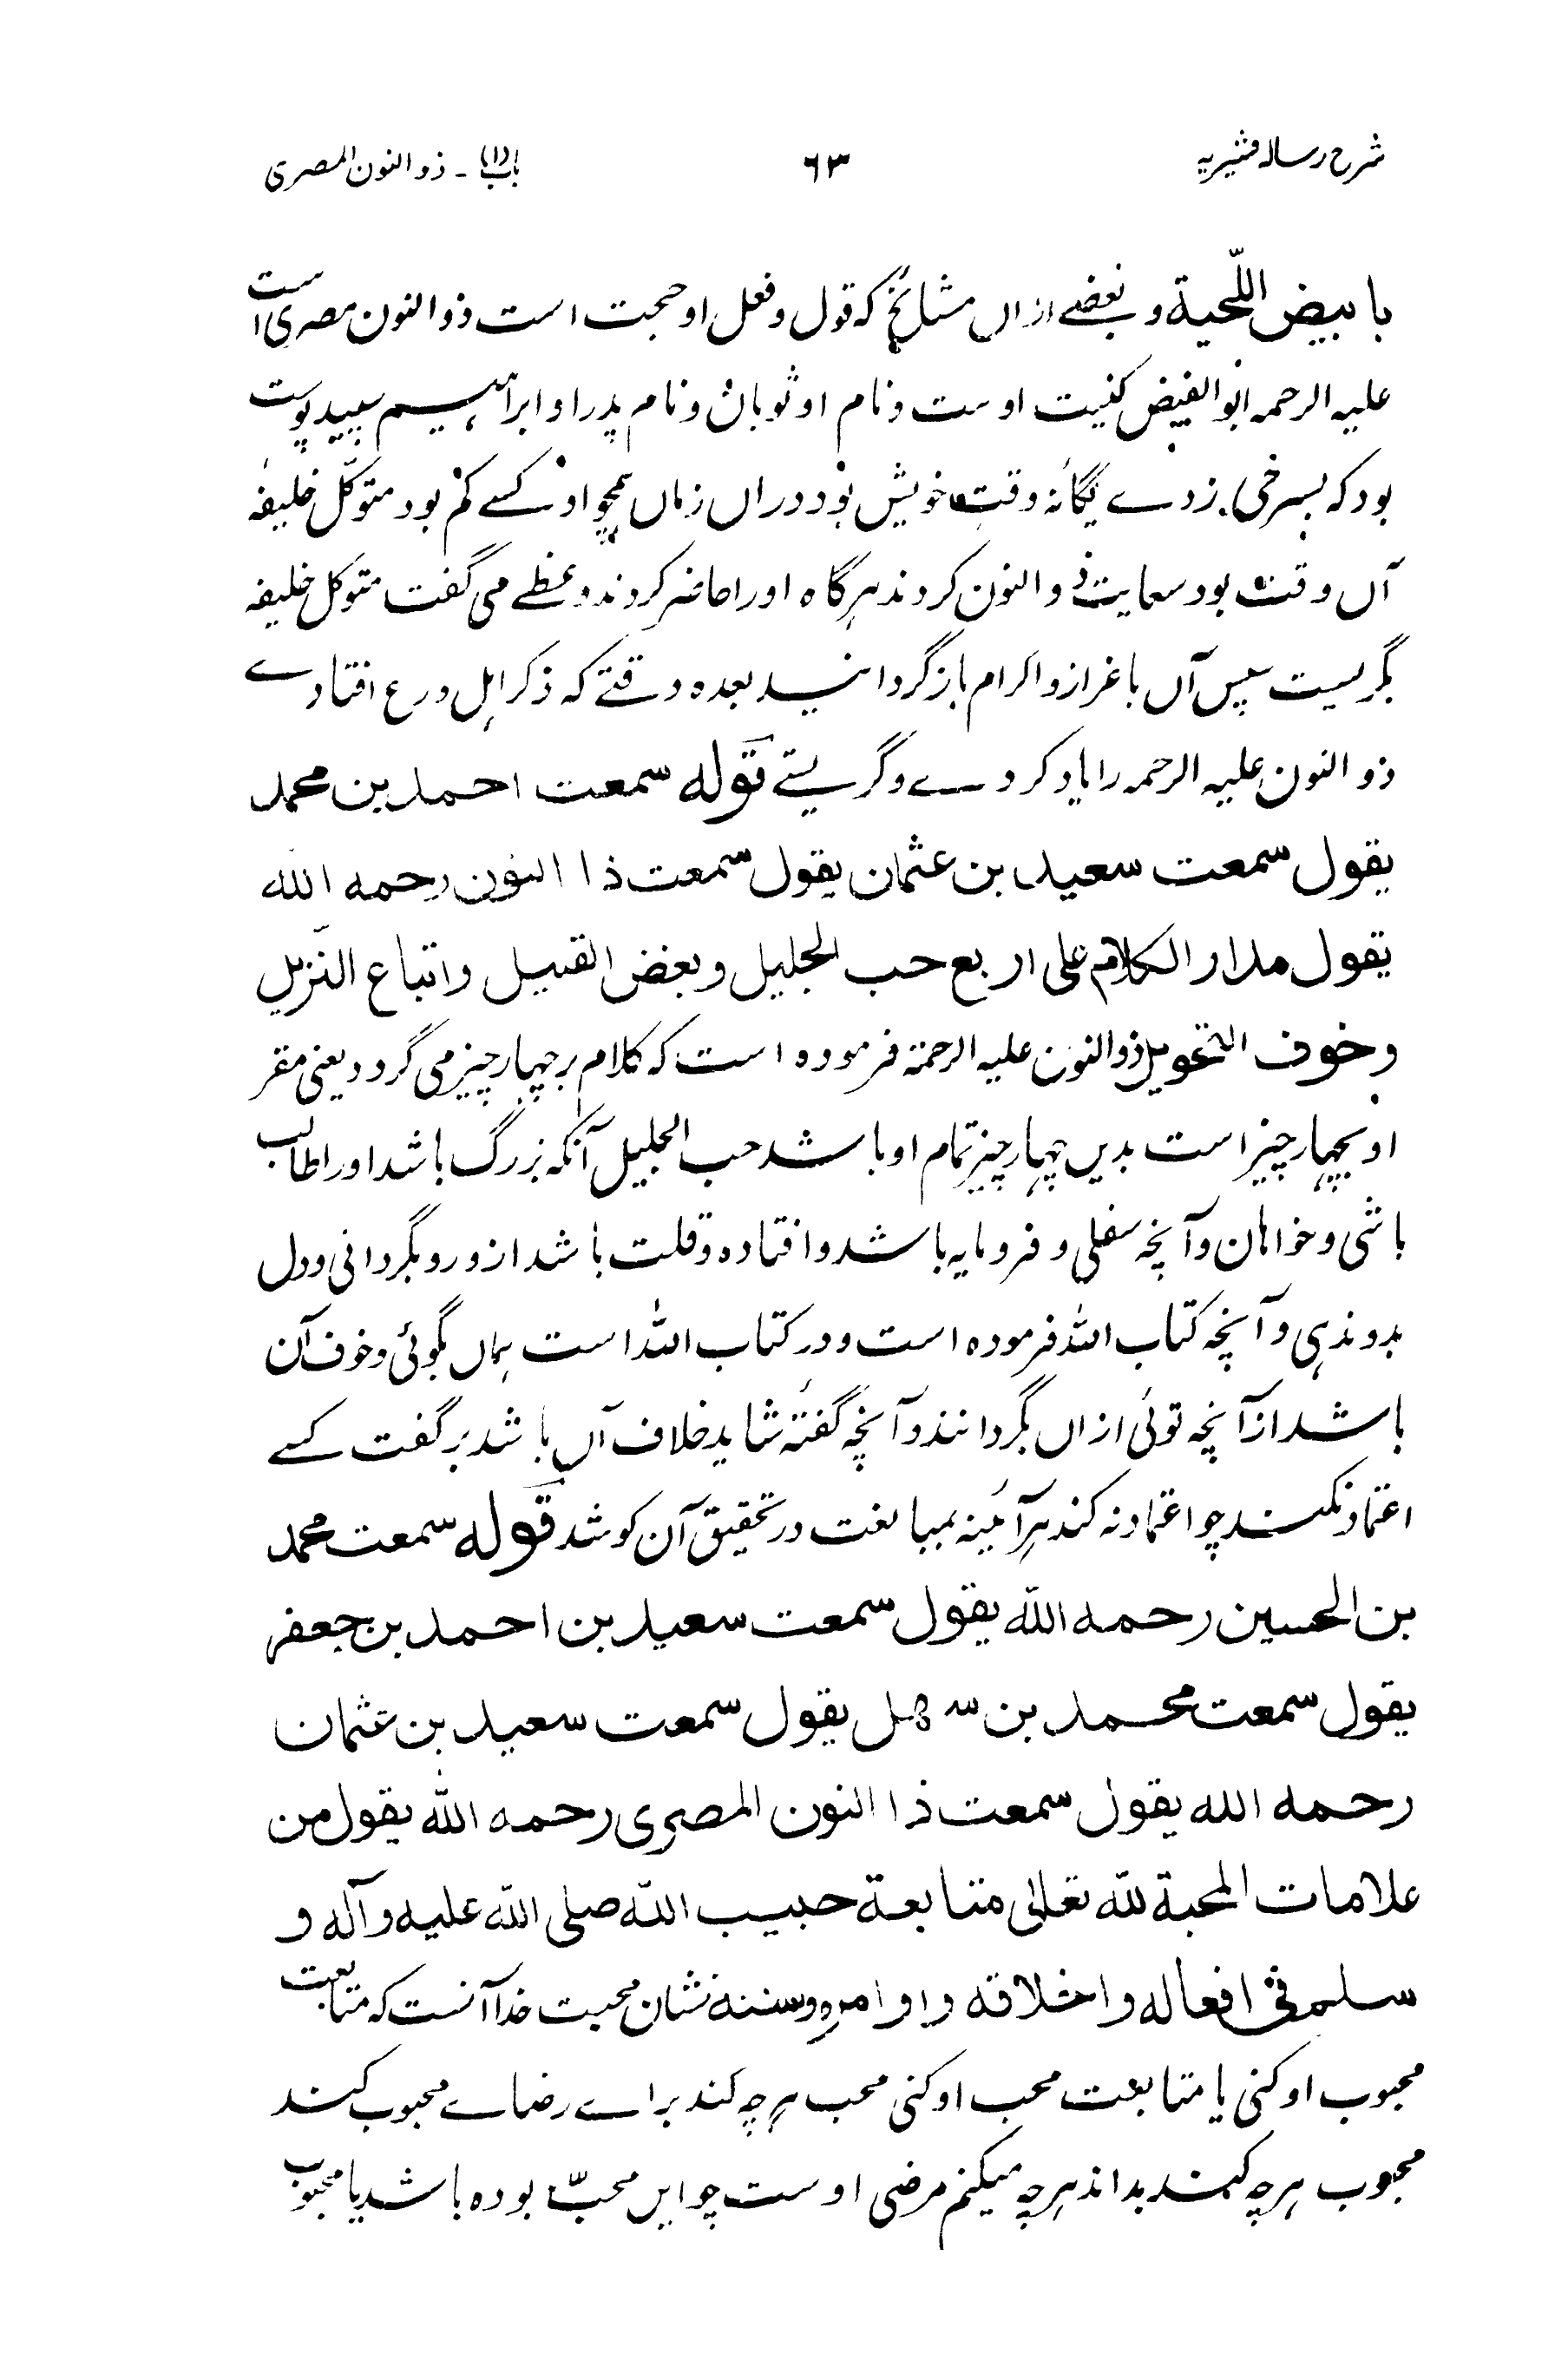 شرح رسالہ قشیریہ ۶۳ باب (۱) ۔ ذو النون المصری
با بیض اللّحیة و بعضے ازاں مشائخ کہ قول و فعل او حجت است ذو النون مصری است
علیہ الرحمہ ابو الفیض کنیت اوست و نام او ثوبان و نام پدر او ابراہیم سپید پوست
بود کہ بسرخی زدے یگانہ وقت خویش بود دراں زماں ہمچو او کسے کم بود متوکّل خلیفہ
آں وقت بود سعایت ذو النون کردند ہرگاہ او را حاضر کردند وعظے می گفت متوکل خلیفہ
بگریست سپس آں باعزاز و اکرام بازگردانید بعدہ وقتے کہ ذکر اہل ورع افتادے
ذو النون علیہ الرحمہ را یاد کردے و گریستے قوله سمعت احمد بن محمد
یقول سمعت سعید بن عثمان یقول سمعت ذا النون رحمه الله
یقول مدار الکلام علی اربع حب الجلیل و بغض القلیل و اتباع التنزیل
و خوف التحویل ذو النون علیہ الرحمة فرمودہ است کہ کلام بر چہار چیز می گردد یعنی مقر
او بچہار چیز است بدیں چہار چیز تمام او باشد حب الجلیل آنکہ بزرگ باشد او را طالب
باشی و خواہان و آنچہ سفلی و فرومایہ باشد و افتادہ و قلت باشد ازو رو بگردانی و دل
بدو ندہی و آنچہ کتاب اللہ فرمودہ است و در کتاب اللہ است ہماں بگوئی و خوف آن
باشد از آنچہ توئی ازاں بگردانند و آنچہ گفتۂ شاید خلاف آں باشد بر گفت کسے
اعتماد نکند چو اعتماد نہ کند ہر آئینہ بمبالغت در تحقیق آن کوشد قوله سمعت محمد
بن الحسین رحمه الله یقول سمعت سعید بن احمد بن جعفر
یقول سمعت محمد بن سهل یقول سمعت سعید بن عثمان
رحمه الله یقول سمعت ذا النون المصری رحمه الله یقول من
علامات المحبة لله تعالی متابعة حبیب الله صلی الله علیه و آله و
سلم فی افعاله و اخلاقه و اوامره و سننه نشان محبت خدا آنست کہ متابعت
محبوب او کنی یا متابعت محب او کنی محب ہرچہ کند براے رضاے محبوب کند
محبوب ہرچہ کند بداند ہرچہ میکنم مرضی اوست چو ایں محبّ بودہ باشد یا محبوب